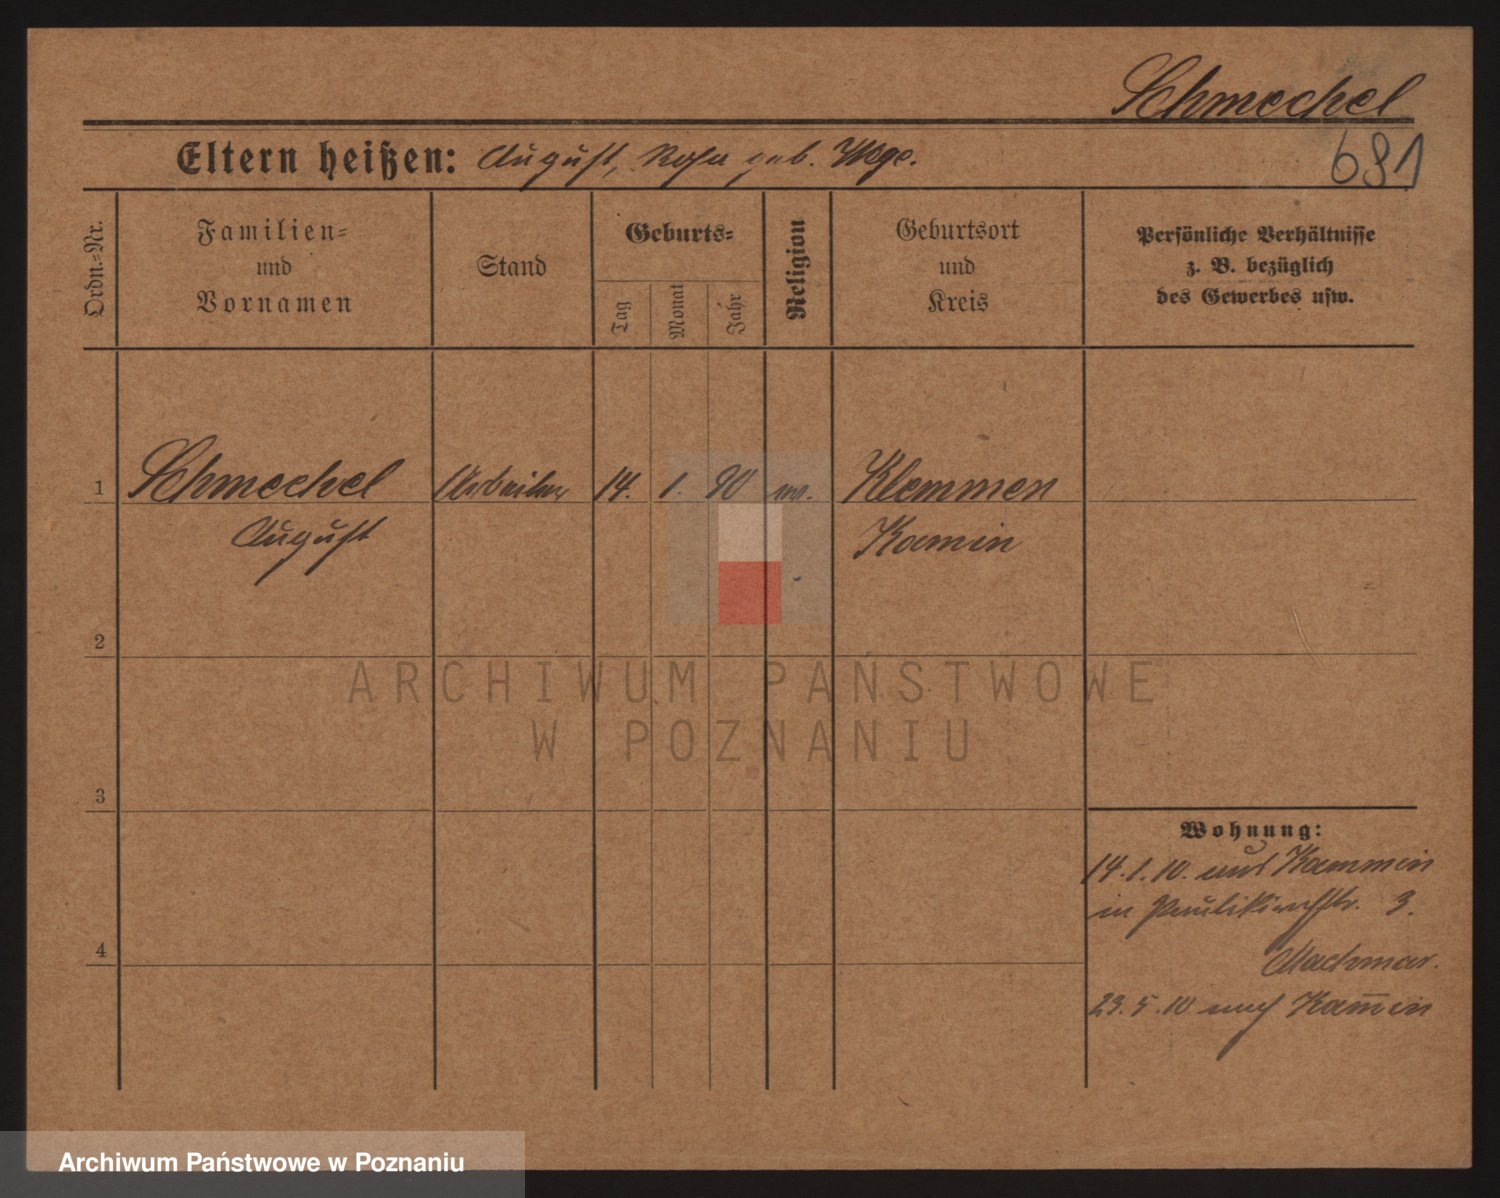 Schmechel
681
Eltern heißen: August, Rosa geb. Wege.
Ordn.-Nr.
Familien-
und
Vornamen
Stand
Geburts-
Tag
Monat
Jahr
Religion
Geburtsort
und
Kreis
Persönliche Verhältnisse
z. B. bezüglich
des Gewerbes usw.
1 Schmechel Arbeiter 14. 1. 90 ev. Klemmen
August Kamin
2
3
4
Wohnung:
14.1.10. aus Kammin
in Paulikirchstr. 3.
Machmar.
23.5.10. nach Kam̅in
ARCHIWUM PAŃSTWOWE
W POZNANIU
Archiwum Państwowe w Poznaniu